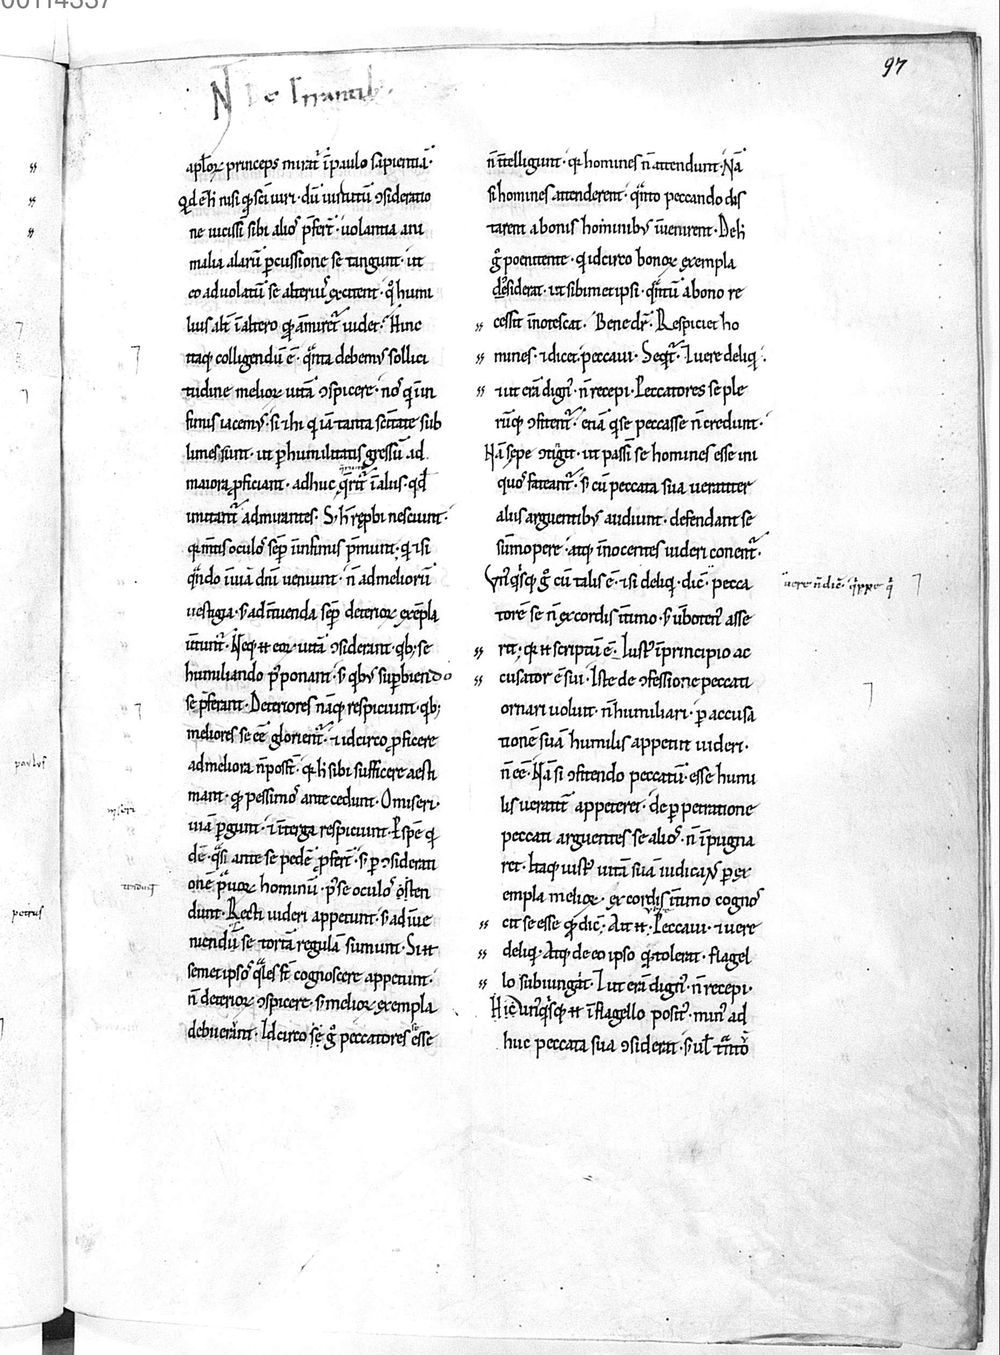 00114337
97
aploꝝ princeps mirat̄ ī paulo sapientiā·
Qd ē h̄ nisi qd̄ sc̄i uiri· dū uirtutū ↄsideratio
ne uicissī sibi alios p̄fert̄· uolantia ani
malia alarū ꝑcussione se tangunt· ut
eo ad uolatū se alteriꝰ excitent· qͦ humi
lius alt̄ ī altero qd̄ amiret̄ uidet· Hinc
itaq; colligendū ē· qͣnta debemꝰ sollici
tudine melioꝝ uitā ↄspicere· nos qͥ in
fimis iacemꝰ· si ⁊ hi qͥ iā tanta sc̄itate sub
limes sunt· ut ꝑ humilitatis gressū ad
maiora ꝓficiant· adhuc q̄rūt ī aliis· qd̄
imitant̄ admirantes· S; h̄ rep̱bi nesciunt·
qͥ mt̄is oculos sēp ī infimis p̄munt· qͥ ⁊ si
qn̄do ī uiā dn̄i ueniunt· n̄ ad melioꝝ
uestigia· s; ad intuenda sēp deterioꝝ exēpla
ūtunt̄· Neq; eni eoꝝ uitā ↄsiderant· qb; se
humiliando p̄ponant· s; qb; suꝑbiendo
se p̄ferant· Deteriores nāq; respiciunt· qb;
meliores se eē glorient̄· ⁊ idcirco ꝓficere
ad meliora n̄ poss̄t· qͥ h̄ sibi sufficere aesti
mant· qd̄ pessimos antecedunt· O miseri·
uiā ꝑgunt· ⁊ in terga respiciunt· Espē qͥ
dē· qͣsi ante se pedē ꝓfert̄· s; ꝑ ↄsiderati
onē p̄uoꝝ hominū· p̄ se oculos ostēn
dunt· Recti uideri appetunt· s; ad iue
niendū se tortā regulā sumunt· Si eni
semetipsos qͣles st̄ cognoscere appetunt·
n̄ deterioꝝ ↄspicere· s; melioꝝ exempla
debuerant· Idcirco se g̊ peccatores esse
n̄ intelligunt· qͥ homines n̄ attendunt· Nā
si homines attenderent· qͣnto peccando dis
tarent a bonis hominibꝰ inuenirent· De h̄
g̊ poenitente· qͥ idcirco bonoꝝ exempla
desiderat· ut sibimet ipsi· qͣntū a bono re
cessit innotescat· Bene dr̄· Respiciet ho
mines· ⁊ dicet peccaui· Seqt̄· ⁊ uere deliqͥ·
⁊ ut erā dignꝰ· n̄ recepi· Peccatores se ple
rūq; ↄfitent̄· etiā qͥ se peccasse n̄ credunt·
Nā sepe ↄtigit· ut passī se homines esse ini
quos fateant̄· s; cū peccata sua ueraciter
aliis arguentibꝰ audiunt· defendant se
sūmopere· atq; innocentes uideri conent̄·
Vnꝰqͥsq; g̊ cū talis ē· ⁊ si deliqͥ· dic̄· pecca
torē se n̄ ex cordis intimo· s; uerbotenꝰ asse
rit· qͥ eni scriptū ē· Iustꝰ in principio ac
cusator ē sui· Iste de ↄfessione peccati
ornari uoluit· n̄ humiliari· ꝑ accusa
tionē suā humilis appetit uideri·
n̄ eē· Nā si ↄfitendo peccatū· esse humi
lis ueraciter appeteret· de ꝑpetratione
peccati arguentes se alios· n̄ īpugna
ret· Itaq; iustꝰ uitā suā iudicans ꝑ ex
empla melioꝝ· ex cordis intimo cognos
cit se esse qd̄ dic̄· Ait eni· Peccaui· ⁊ uere
deliqͥ· Atq; de eo ipso qd̄ tolerat· flagel
lo subiungat· ⁊ ut erā dignꝰ· n̄ recepi·
Hic unꝰqͥsq; eni ī flagello positꝰ· minꝰ ad
huc peccata sua ↄsiderat· s; ul̄ tanto
uere n̄ dic̄· qͥppe qͥ
paulus
miseri
petrus